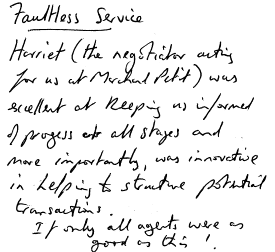 Faultless Service
Harriet (the negotiator acting
for us at Marchand Petit) was
excellent at keeping us informed
of progess at all stages and
more importantly, was innovative
in helping to structure potential
transactions.
If only all agents were as
good as this.